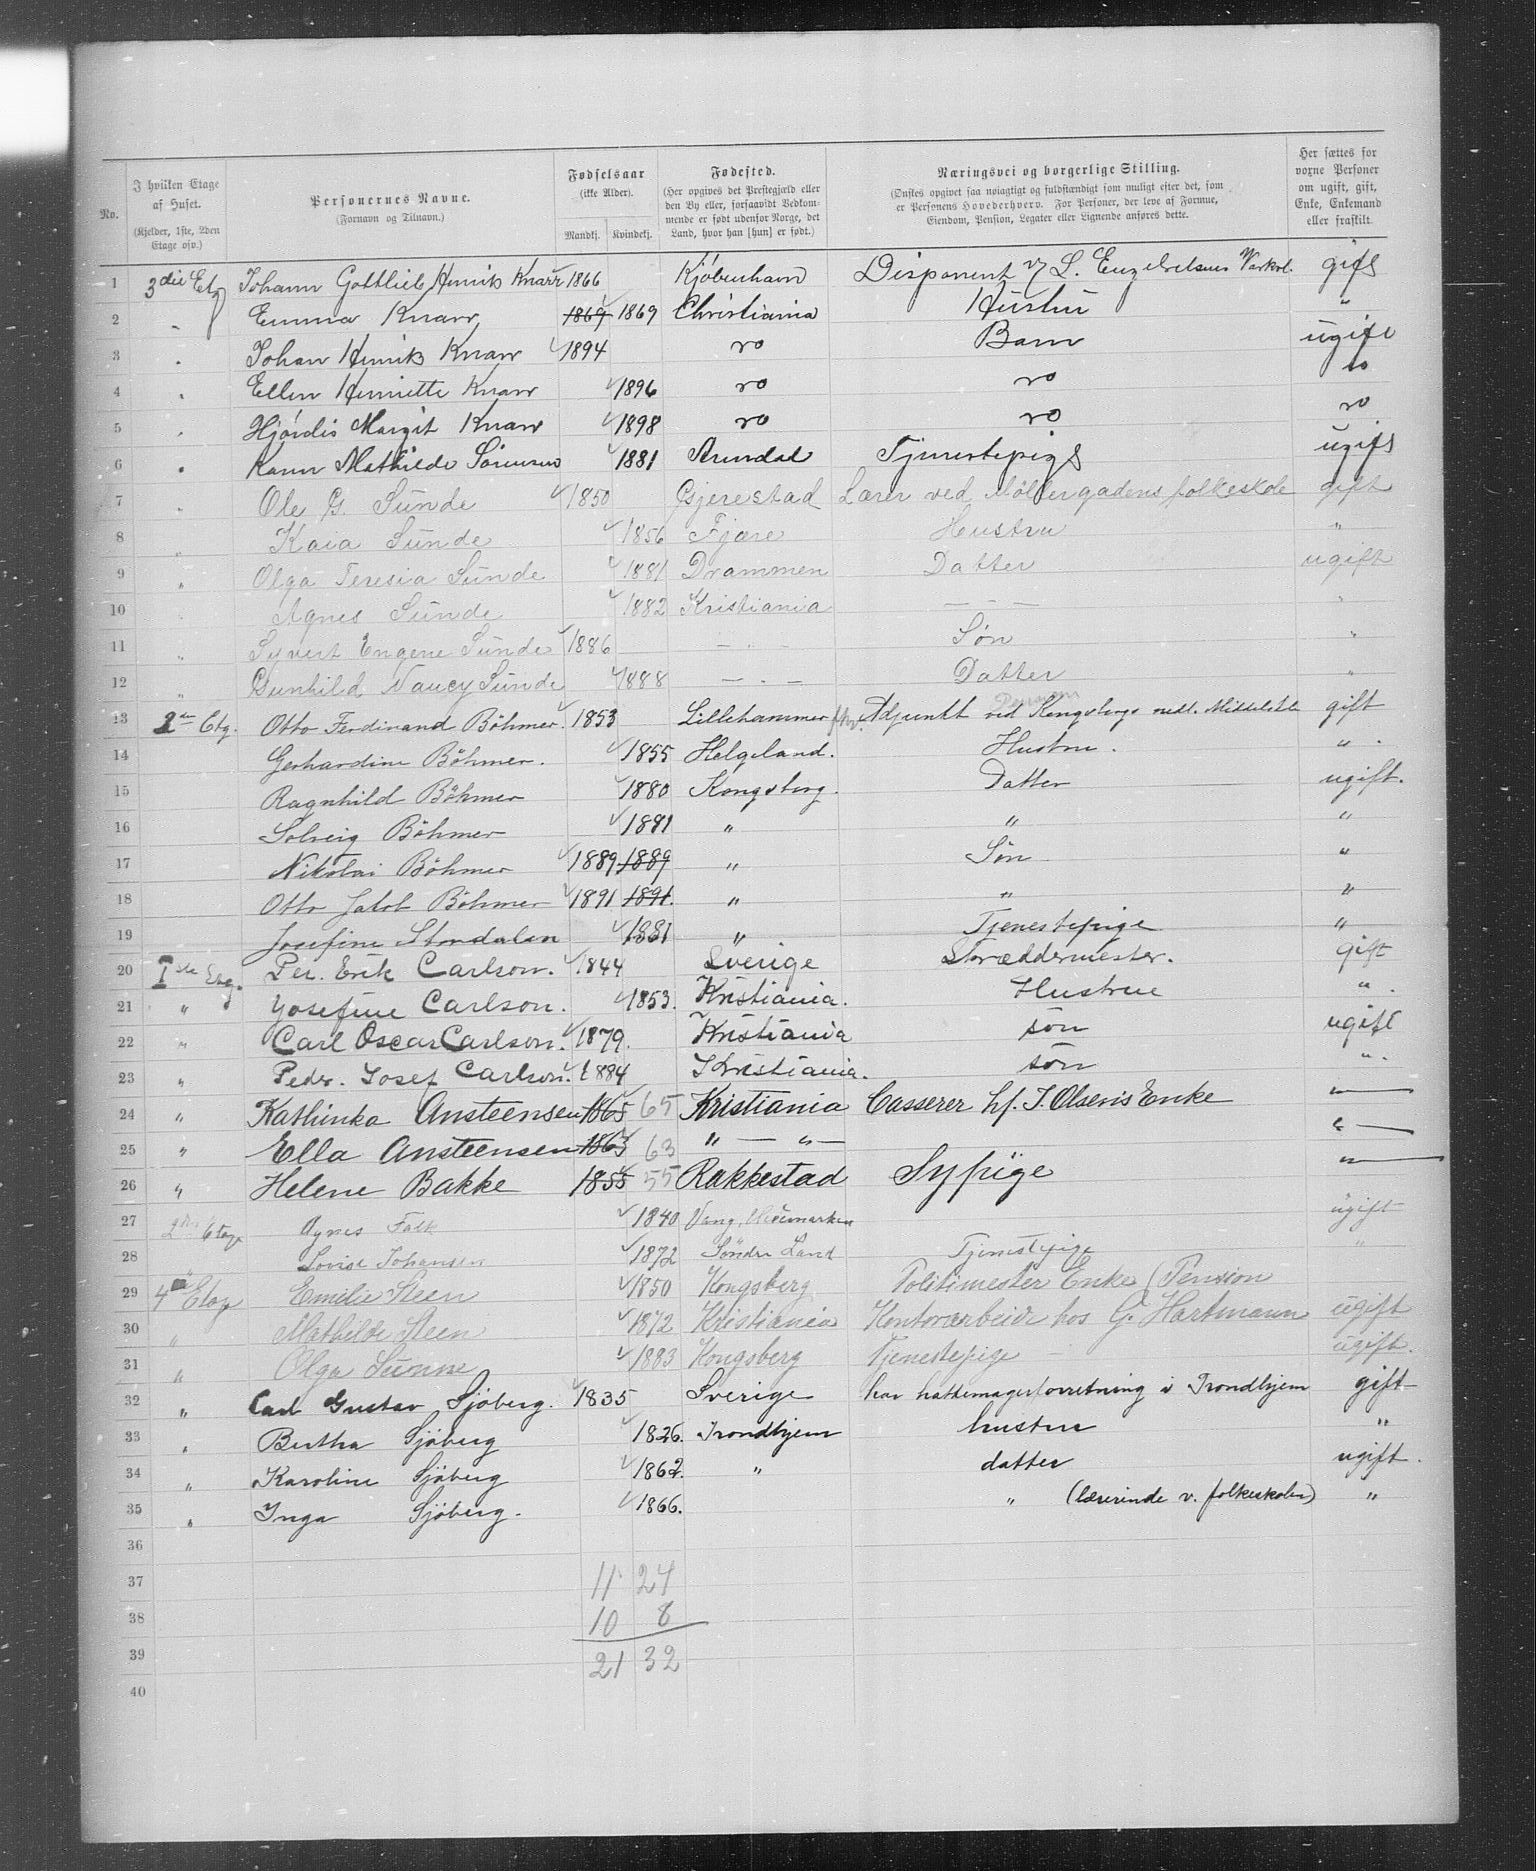 No. | I hvilken Etage af Huset. (Kjelder, 1ste, 2den Etage osv.) | Personernes Navne. (Fornavn og Tilnavn.) | Fødselsaar (ikke Alder). Mandkj. Kvindekj. | Fødested. (Her opgives det Prestegjæld eller den By eller, forsaavidt Vedkommende er født udenfor Norge, det Land, hvor han [hun] er født.) | Næringsvei og borgerlige Stilling. (Ønskes opgivet saa nøiagtigt og fuldstændigt som muligt efter det, som er Personens Hovederhverv. For Personer, der leve af Formue, Eiendom, Pension, Legater eller Lignende anføres dette. | Her sættes for voxne Personer om ugift, gift, Enke, Enkemand eller fraskilt.
1 3die Etg Johann Gottlieb Henrik Knarr 1866 Kjøbenhavn Disponent v/ L. gift
2 " Emma Knarr 1869 1869 Christiania Hustru "
3 " Johan Henrik Knarr 1894 do Barn ugift
4 " Ellen Henriette Knarr 1896 do do do
5 " Hjördis Margit Knarr 1898 do do do
6 " Karen Mathilde Sörensen 1881 Arendal Tjenestepige ugift
7 " Ole G. Sunde 1850 Gjerestad Lærer ved Möllergadens folkeskole gift
8 " Kaia Sunde 1856 Fjære Hustru "
9 " Olga Teresia Sunde 1881 Drammen Datter ugift
10 Agnes Sunde 1882 Kristiania — — — "
11 " Syvert Eugene Sunde 1886 — . — Søn "
12 " Gunhild Nancy Sunde 1888 — . — Datter "
13 2den Etg. Otto Ferdinand Böhmer 1853 Lillehammer Adjunkt ved Kongsbergs gift
14 Gerhardine Böhmer. 1855 Helgeland. Hustru. "
15 Ragnhild Böhmer 1880 Kongsberg. Datter ugift.
16 Solveig Böhmer 1881 " " "
17 Nikolai Böhmer 1889 1889 " Søn "
18 Otto Jakob Böhmer 1891 1891. " " "
19 Josefine Stordalen 1881 " Tjenestepige "
20 I ste Etg. Per. Erik Carlson. 1844 Sverige Skræddermester. gift
21 " Josefine Carlson. 1853. Kristiania. Hustrue "
22 " Carl Oscar Carlson. 1879. Kristiania sön ugift
23 " Peder. Josef Carlson. 1884 Kristiania. sön "
24 " Kathinka Ansteensen 1865 65 Kristiania Casserer hf. I. Olsens Enke "
25 " Ella Ansteensen 1863 63 " — " — "
26 " Helene Bakke 1855 55 Rakkestad Sypige "
27 2den Etage Agnes Falk 1840 Vang, Hedemarken ugift
28 " Lovise Johansen 1872 Söndre Land Tjenestepige "
29 4 Etage Emilie Steen 1850 Kongsberg Politimester Enke (Pension
30 " Mathilde Steen 1872 Kristiania Kontorarbeide hos G. Hartmann ugift
31 " Olga Sunne 1883 Kongsberg Tjenestepige — ugift.
32 " Carl Gustav Sjöberg. 1835 Sverige har hattemagerforretning i Trondhjem gift
33 " Bertha Sjöberg 1826. Trondhjem hustru "
34 " Karoline Sjöberg 1862. " datter ugift.
35 " Inga Sjöberg. 1866. " (lærerinde v. folkeskolen) "
36
37 11 24
38 10 8
39 21 32
40